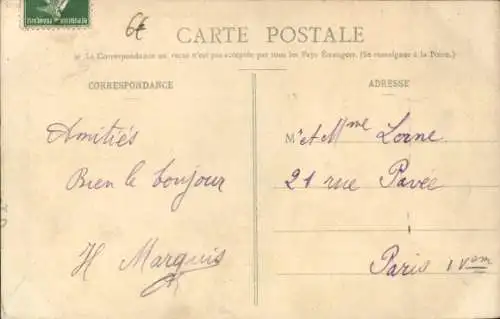 REPUBLIQUE FRANÇAISE
6€
CARTE POSTALE
La Correspondance au recto n'est pas acceptée par tous les Pays Étrangers. (Se renseigner à la Poste.)
CORRESPONDANCE
Amitiés
Bien le bonjour
H Marquis
ADRESSE
M' et Mme Lorne
21 rue Pavée
Paris IVem